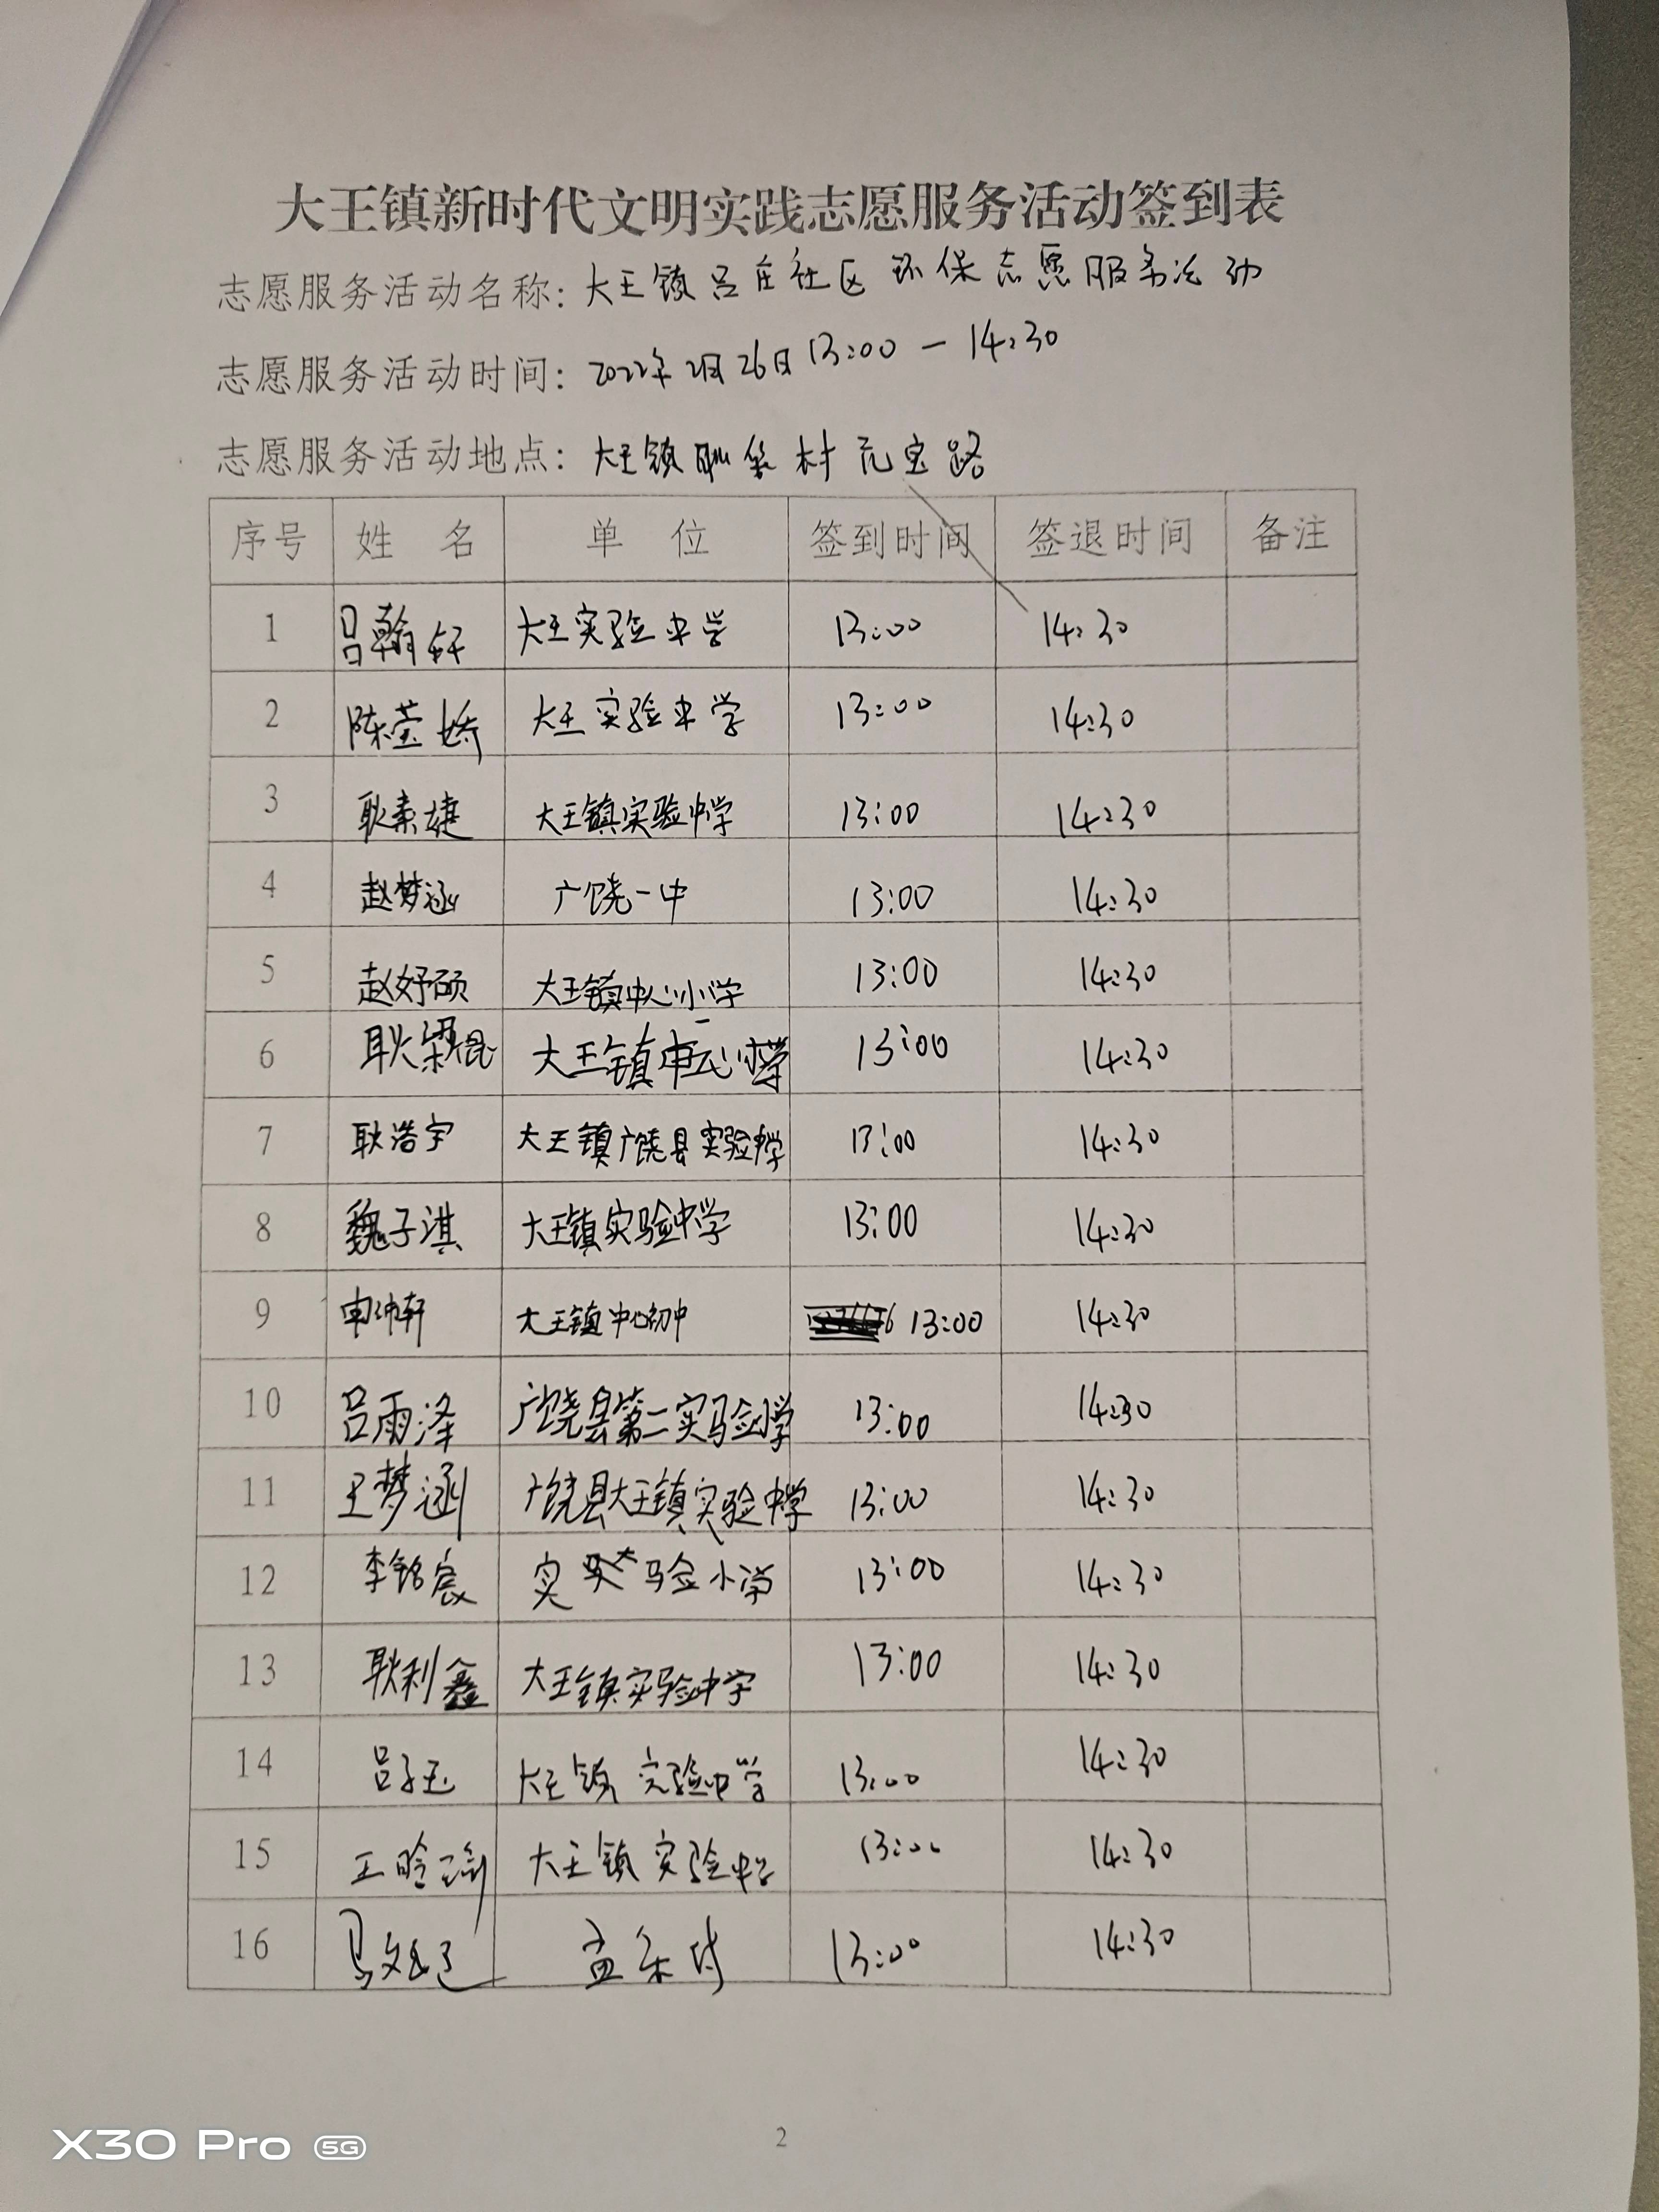 大王镇新时代文明实践志愿服务活动签到表
志愿服务活动名称: 大王镇吕庄社区环保志愿服务活动
志愿服务活动时间: 2022年2月26日13:00-14:30
志愿服务活动地点: 大王镇耿集村元宝路
序号 姓名 单位 签到时间 签退时间 备注
1 吕翰轩 大王实验中学 13:00 14:30
2 陈莹娇 大王实验中学 13:00 14:30
3 耿素婕 大王镇实验中学 13:00 14:30
4 赵梦涵 广饶一中 13:00 14:30
5 赵妤硕 大王镇中心小学 13:00 14:30
6 耿梁焜 大王镇中心小学 13:00 14:30
7 耿浩宇 大王镇广饶县实验中学 13:00 14:30
8 魏子淇 大王镇实验中学 13:00 14:30
9 申沛轩 大王镇中心初中 13:00 14:30
10 吕雨泽 广饶县第二实验小学 13:00 14:30
11 王梦涵 广饶县大王镇实验中学 13:00 14:30
12 李铭宸 实验小学 13:00 14:30
13 耿利鑫 大王镇实验中学 13:00 14:30
14 吕子玉 大王镇实验中学 13:00 14:30
15 王晗瑜 大王镇实验中学 13:00 14:30
16 13:00 14:30
2
X30 Pro 5G